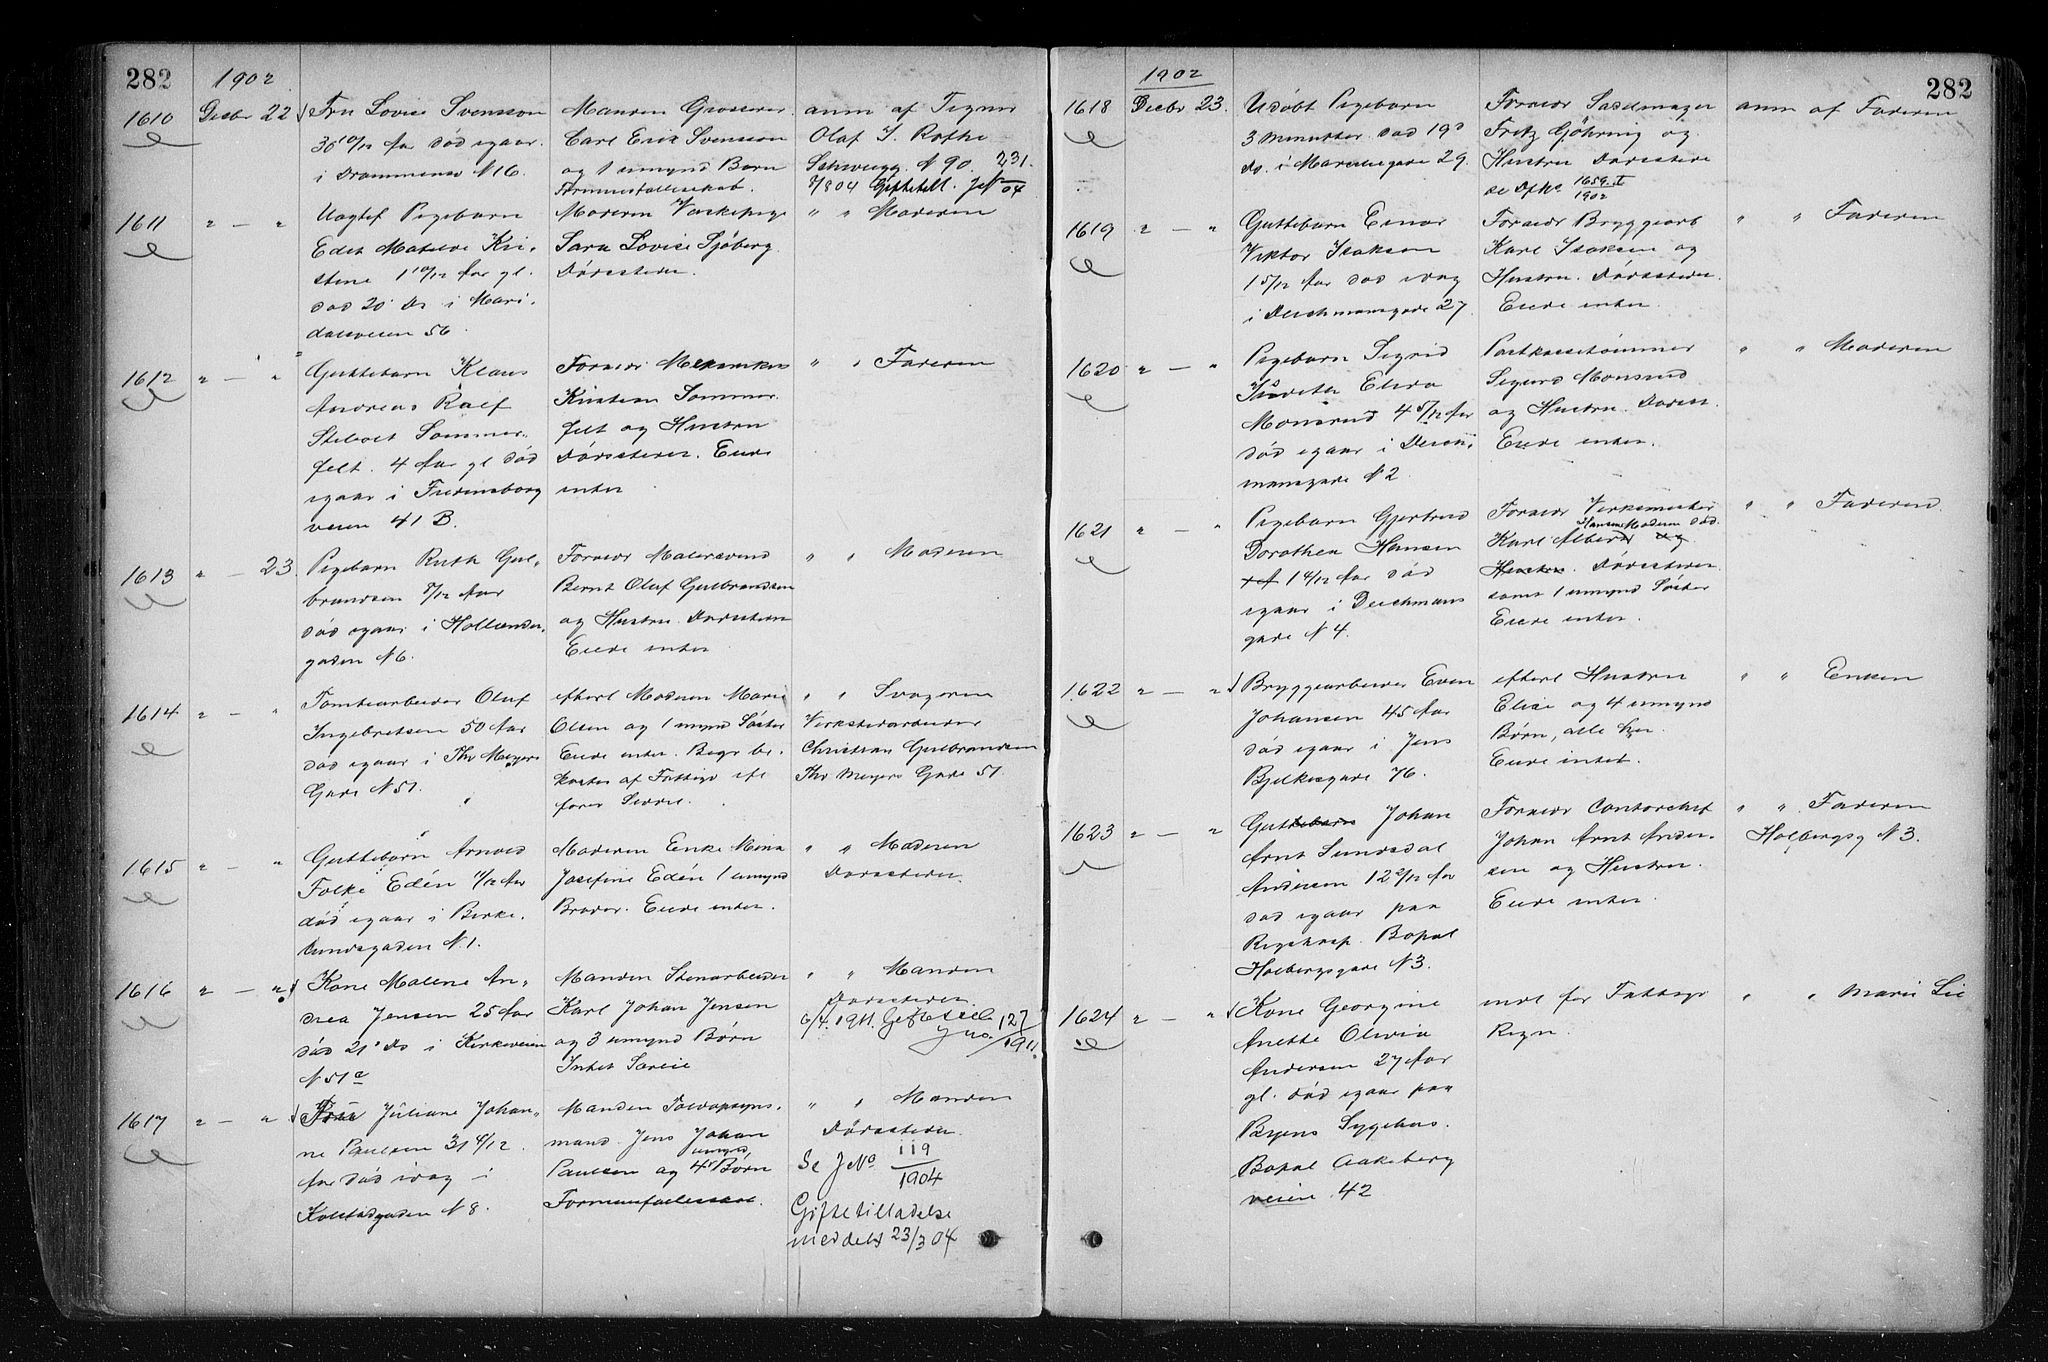 282
1902
1610 Desbr 22 Fru Lovise Svensson
36 10/12 Aar død igaar
i Drammensv N 16.
Manden Grosserer
Carl Erik Svensson
og 1 umynd Barn
Formuesfællesskab.
anm af Tegner
Olaf T. Rothe
Schweigg. N 90.
7/8 04 Giftetill. JN 231/04
1611 " — " Uægtef Pigebarn
Edit Matilde Kri-
stine 1 10/12 Aar gl.
død 20 ds i Mari-
dalsveien 56
Moderen Vaskepige
Sara Lovise Sjøberg
Dødsstedet.
" " Moderen
1612 " — " Guttebarn Klaus
Andreas Ralf
Stibolt Sommer-
felt. 4 Aar gl død
igaar i Fredensborg
veien 41 B.
Forældr Mekanikus
Kristian Sommer-
felt og Hustru
Dødsstedet. Eiede
intet
" " Faderen
1613 " — 23. Pigebarn Ruth Gul-
brandsen 7/12 Aar
død igaar i Hollænder-
gaden N 6.
Forældr Malersvend
Bernt Oluf Gulbrandsen
og Hustru. Dødsstedet
Eiede intet
" " Moderen
1614 " — " Tomtearbeider Oluf
Ingebretsen 50 Aar
død igaar i Thv Meyers
Gade N 51.
efterl Moderen Marie
Olsen og 1 umynd Søster
Eiede intet. Begr be-
kostes af Fattigv eft
foren Seddel.
" " Svogeren
Verkstedarbeider
Christian Gulbrandsen
Thv Meyers Gade 51.
1615 " — " Guttebarn Arnold
Folke Edén 11/12 Aar
død igaar i Birke-
lundsgaden N 1.
Moderen Enke Mina
Josefine Edén 1 umynd
Broder. Eiede intet.
" " Moderen
Dødsstedet.
1616 " — " Kone Malene An-
drea Jensen 25 Aar
død 21 ds i Kirkeveien
N 51 c
Manden Stenarbeider
Karl Johan Jensen
og 3 umynd Børn
Intet Særeie
" " Manden
Dødsstedet.
6/4. 1911. Giftetill
Jno. 127/1911.
1617 " — " Fru Juliane Johan-
ne Paulsen 31 4/12
Aar død idag i
Kolstadgaden N 8.
Manden Toldopsyns-
mand Jens Johan
Paulsen og 4 umynd Børn
Formuesfællesskab.
" " Manden
Dødsstedet.
Se J No 119/1904
Giftetilladelse
meddelt 23/3 04
282
1902
1618 Desbr 23. Udøbt Pigebarn
3 Minutter død 19d
ds. i Maridalsgade 29.
Forældr Sadelmager
Fritz Göhring og
Hustru Dødsstedet
se Df No 1659. I/1902
anm af Faderen
1619 " — " Guttebarn Einar
Viktor Isaksen
1 5/12 Aar død idag
i Deichmansgade 27.
Forældr Bryggearb
Karl Isaksen og
Hustru. Dødsstedet.
Eiede intet.
" " Faderen
1620 " — " Pigebarn Sigrid
Elida
Monsrud 4 5/12 Aar
død igaar i Deich-
mansgade N 2
Postkassetømmer
Sigurd Monsrud
og Hustru. Dødsst.
Eiede intet.
" " Moderen
1621 " — " Pigebarn Gjertrud
Dorothea Hansen
1 4/12 Aar død
igaar i Deichmans
gade N 4.
Forældr Verksmester
Karl Albert Hansen Moderen død. og
Hustru. Dødsstedet
samt 1 umynd Søster
Eiede intet.
" " Faderen.
1622 " — " Bryggearbeider Even
Johansen 45 Aar
død igaar i Jens
Bjelkesgade 76.
efterl Hustru
Elise og 4 umynd
Børn, alle her.
Eiede intet.
" " Enken
1623 " — " Guttebarn Johan
Arnt Sundsdal
Andersen 12 2/12 Aar
død igaar paa
Rigshosp. Bopæl
Holbergsgade N 3.
Forældr Contorchef
Johan Arnt Ander-
sen og Hustru.
Eiede intet.
" " Faderen
Holbergsg N 3.
1624 " — " Kone Georgine
Anette Olivia
Andersen 27 Aar
gl. død igaar paa
Byens Sygehus.
Bopæl Aakeberg
veien 42
indl for Fattigv
Regn.
" " Marie Lie